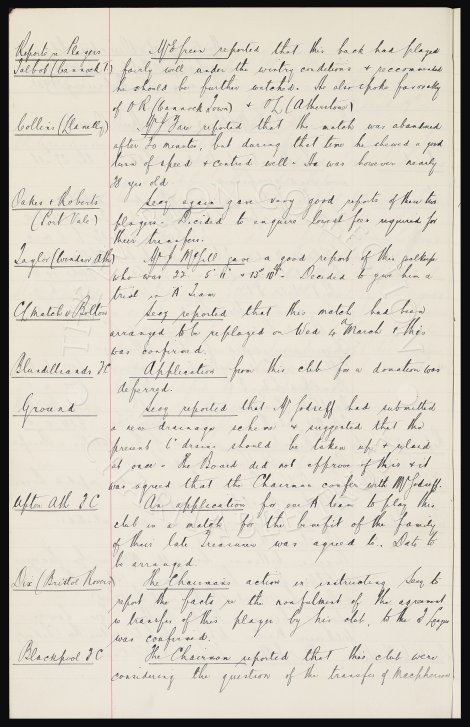 Reports re Players
Talbot (Cannock T)
Mr E Green reported that this back had played
fairly well under the wintry conditions & recommended
he should be further watched. He also spoke favourably
of O R (Cannock Town) & O L (Atherstone)
Collins (Llanelly)
Mr J Fare reported that the match was abandoned
after 20 minutes, but during that time he showed a good
turn of speed & centred well - He was however nearly
28 yrs old
Oakes & Roberts
(Port Vale)
Secy again gave very good reports of these two
players. Decided to enquire lowest fees required for
their transfers.
Taylor (Windsor Ath)
Mr J McGill gave a good report of this goalkeeper
who was 22 5' 11" & 13st 10lb - Decided to give him a
trial in A Team
CL match v Bolton
Secy reported that this match had been
arranged to be replayed on Wed 4th March & this
was confirmed.
Blundellsands FC
Application from this club for a donation was
deferred.
Ground
Secy reported that Mr had submitted
a new drainage scheme & suggested that the
present 6" drains should be taken up & relaid
at once - The Board did not approve of this & it
was agreed that the Chairman confer with Mr
Afton Ath FC
An application for our A team to play this
club in a match for the benefit of the family
of their late Treasurer was agreed to. Date to
be arranged.
Dix (Bristol Rovers)
The Chairmans action in instructing Secy to
report the facts re the nonfulment of the agreement
re transfer of this player by his club, to the F League
was confirmed.
Blackpool FC
The Chairman reported that this club were
considering the question of the transfer of Macpherson